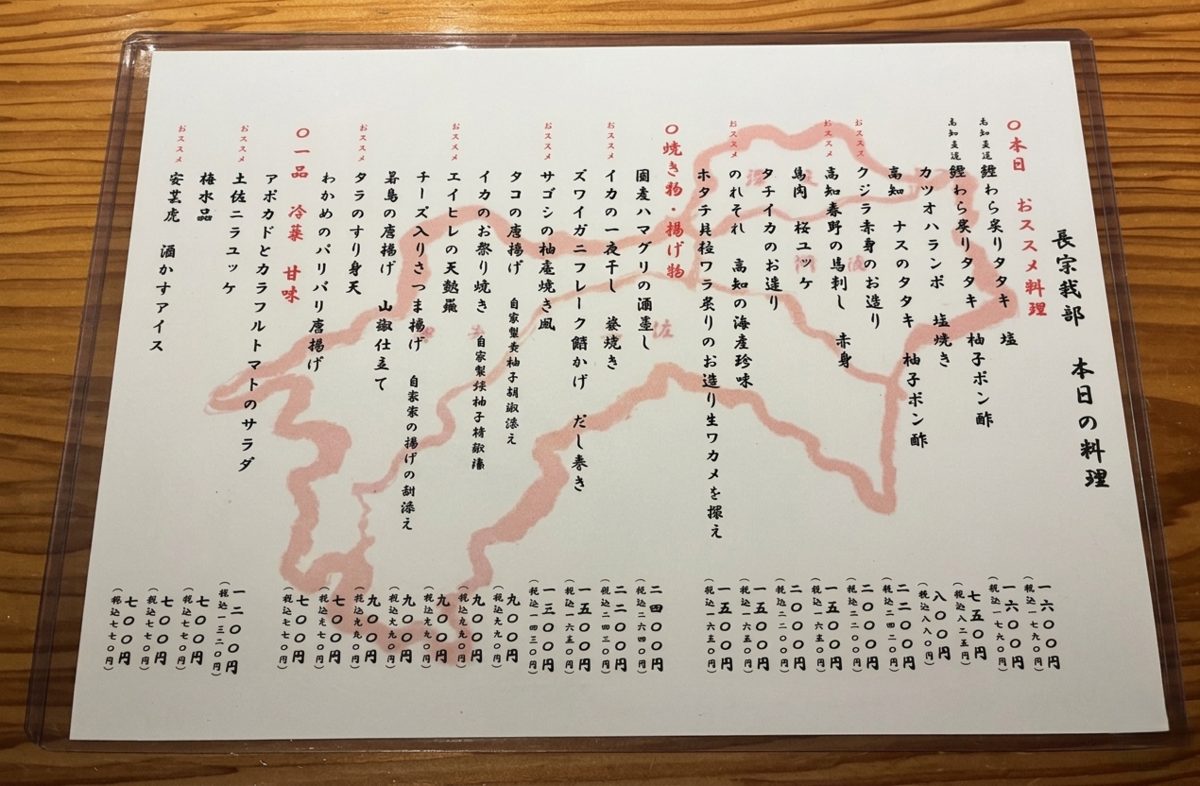 長宗我部 本日の料理
〇本日 おススメ料理
高知直送 鰹わら炙りタタキ 塩 一六〇〇円 (税込一七六〇円)
高知直送 鰹わら炙りタタキ 柚子ポン酢 一六〇〇円 (税込一七六〇円)
カツオハランボ 塩焼き 七五〇円 (税込八二五円)
高知 ナスのタタキ 柚子ポン酢 八〇〇円 (税込八八〇円)
おススメ クジラ赤身のお造り 二二〇〇円 (税込二四二〇円)
おススメ 高知春野の馬刺し 赤身 二〇〇〇円 (税込二二〇〇円)
馬肉 桜ユッケ 一五〇〇円 (税込一六五〇円)
タチイカのお造り 二〇〇〇円 (税込二二〇〇円)
おススメ のれそれ 高知の海産珍味 一五〇〇円 (税込一六五〇円)
ホタテ貝柱ワラ炙りのお造り生ワカメを揉え 一五〇〇円 (税込一六五〇円)
〇焼き物・揚げ物
国産ハマグリの酒蒸し 二四〇〇円 (税込二六四〇円)
おススメ イカの一夜干し 姿焼き 二二〇〇円 (税込二四二〇円)
ズワイガニフレーク餡かけ だし巻き 一五〇〇円 (税込一六五〇円)
おススメ サゴシの柚庵焼き風 一三〇〇円 (税込一四三〇円)
タコの唐揚げ 自家製黄柚子胡椒添え 九〇〇円 (税込九九〇円)
イカのお祭り焼き 自家製 九〇〇円 (税込九九〇円)
おススメ エイヒレの天麩羅 九〇〇円 (税込九九〇円)
チーズ入りさつま揚げ 九〇〇円 (税込九九〇円)
若鳥の唐揚げ 山椒仕立て 九〇〇円 (税込九九〇円)
おススメ タラのすり身天 七〇〇円 (税込七七〇円)
わかめのパリパリ唐揚げ 七〇〇円 (税込七七〇円)
〇一品 冷菜 甘味
アボカドとカラフルトマトのサラダ 一二〇〇円 (税込一三二〇円)
おススメ 土佐ニラユッケ 七〇〇円 (税込七七〇円)
梅水晶 七〇〇円 (税込七七〇円)
おススメ 安芸虎 酒かすアイス 七〇〇円 (税込七七〇円)